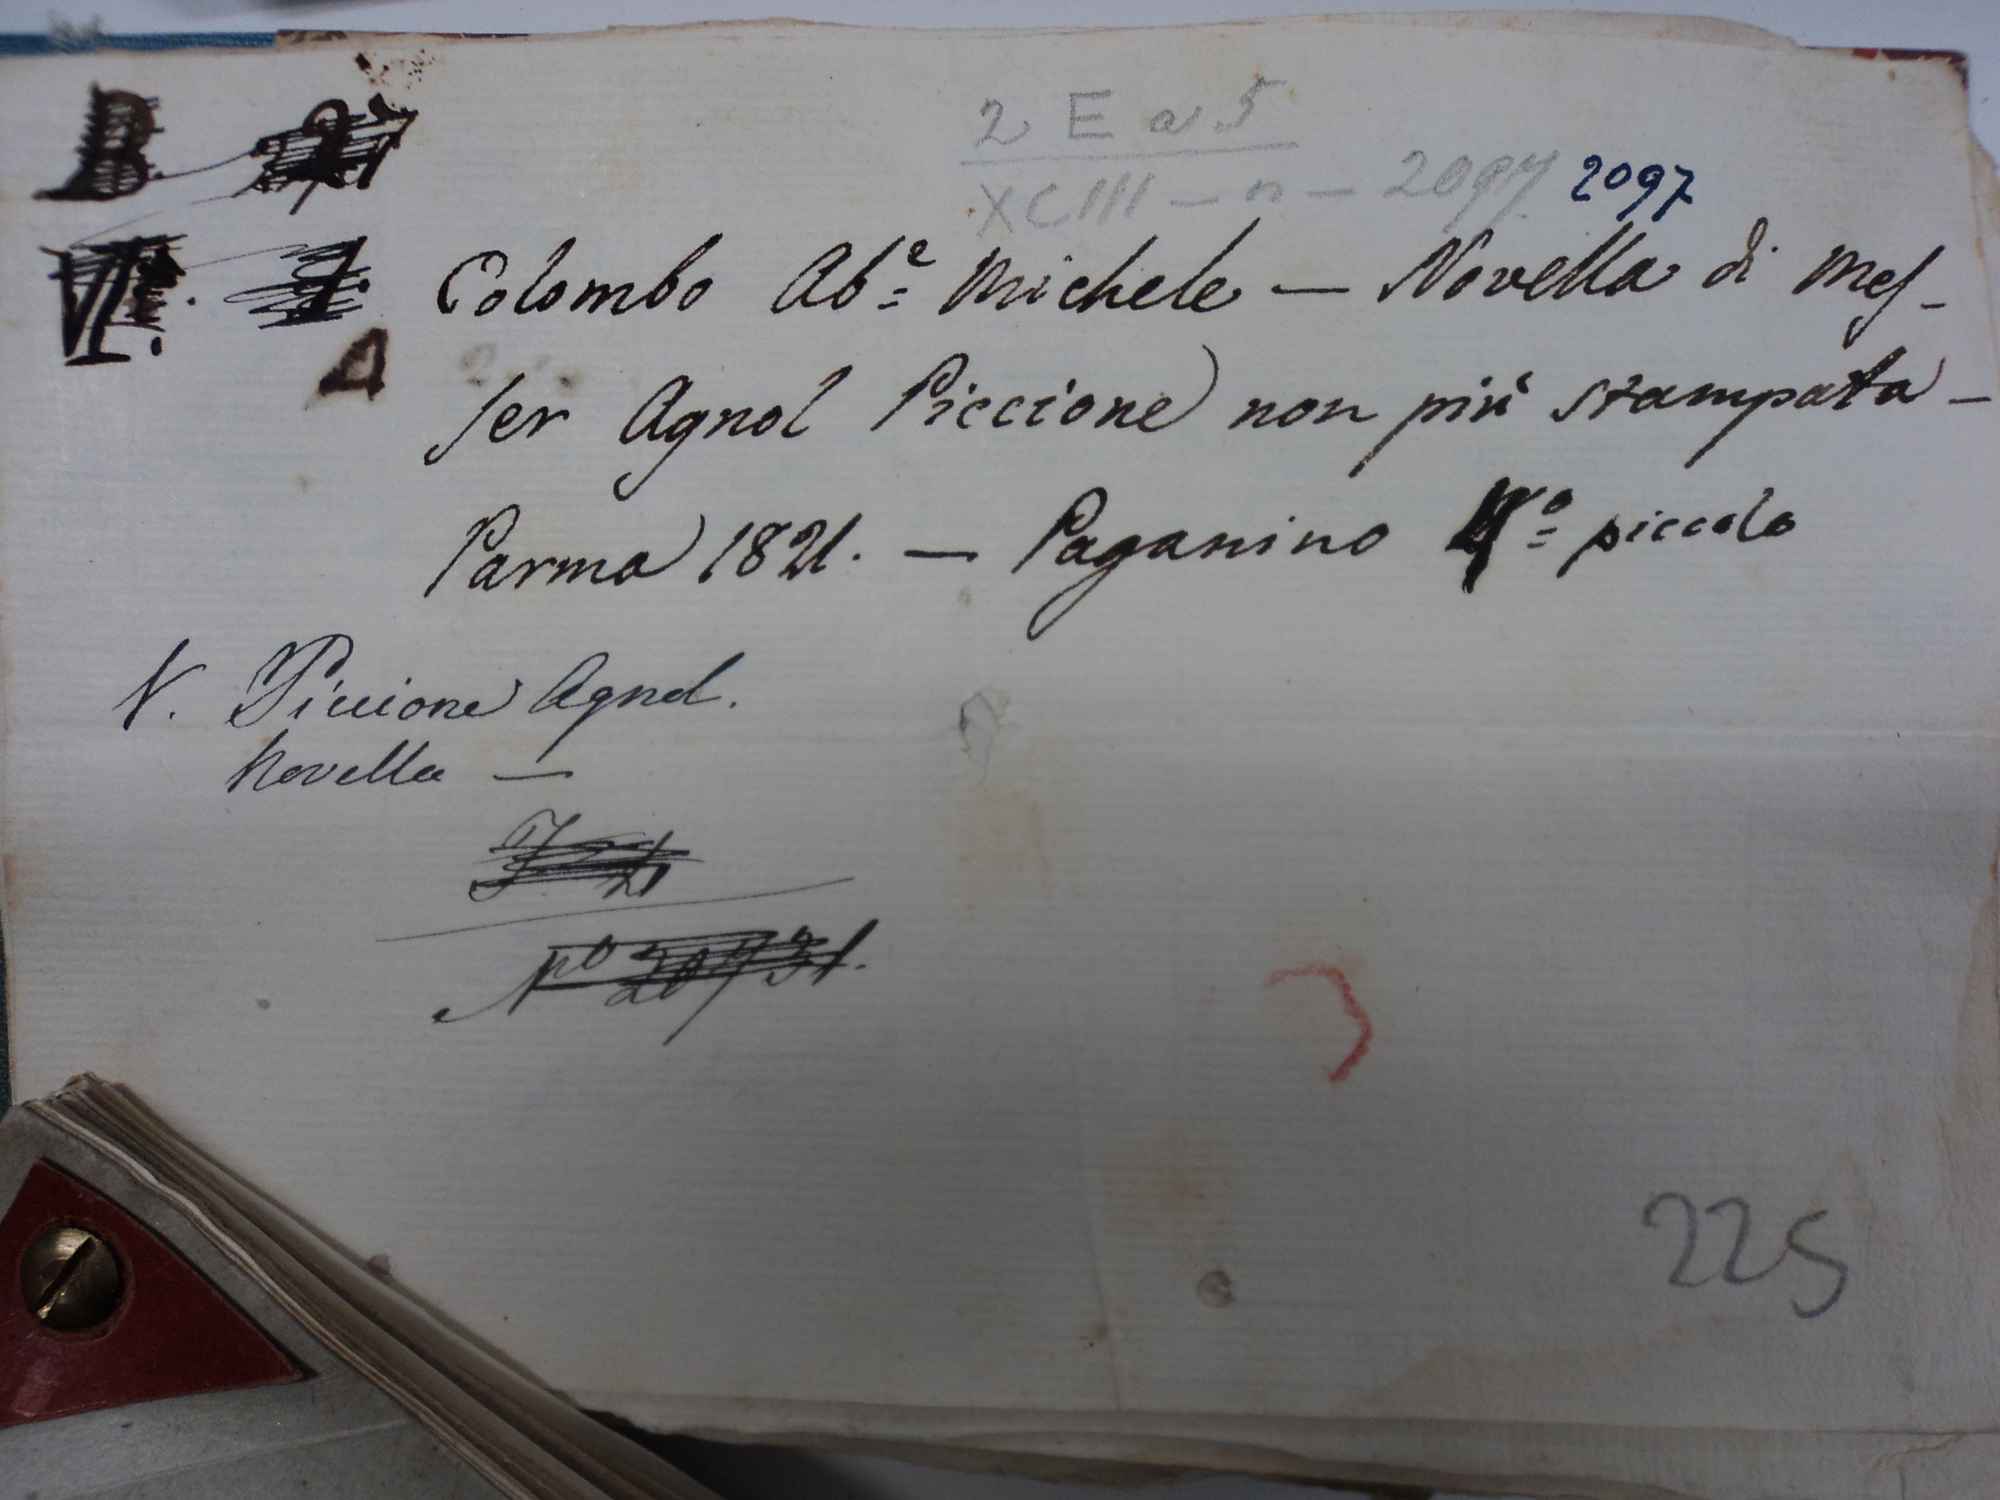 2 E a 5
XCIII - n - 2097 2097
Colombo Ab.e Michele — Novella di Mes-
ser Agnol Piccione non più stampata —
Parma 1821. — Paganino 4.o piccolo
V. Piccione Agnol.
Novella —
225